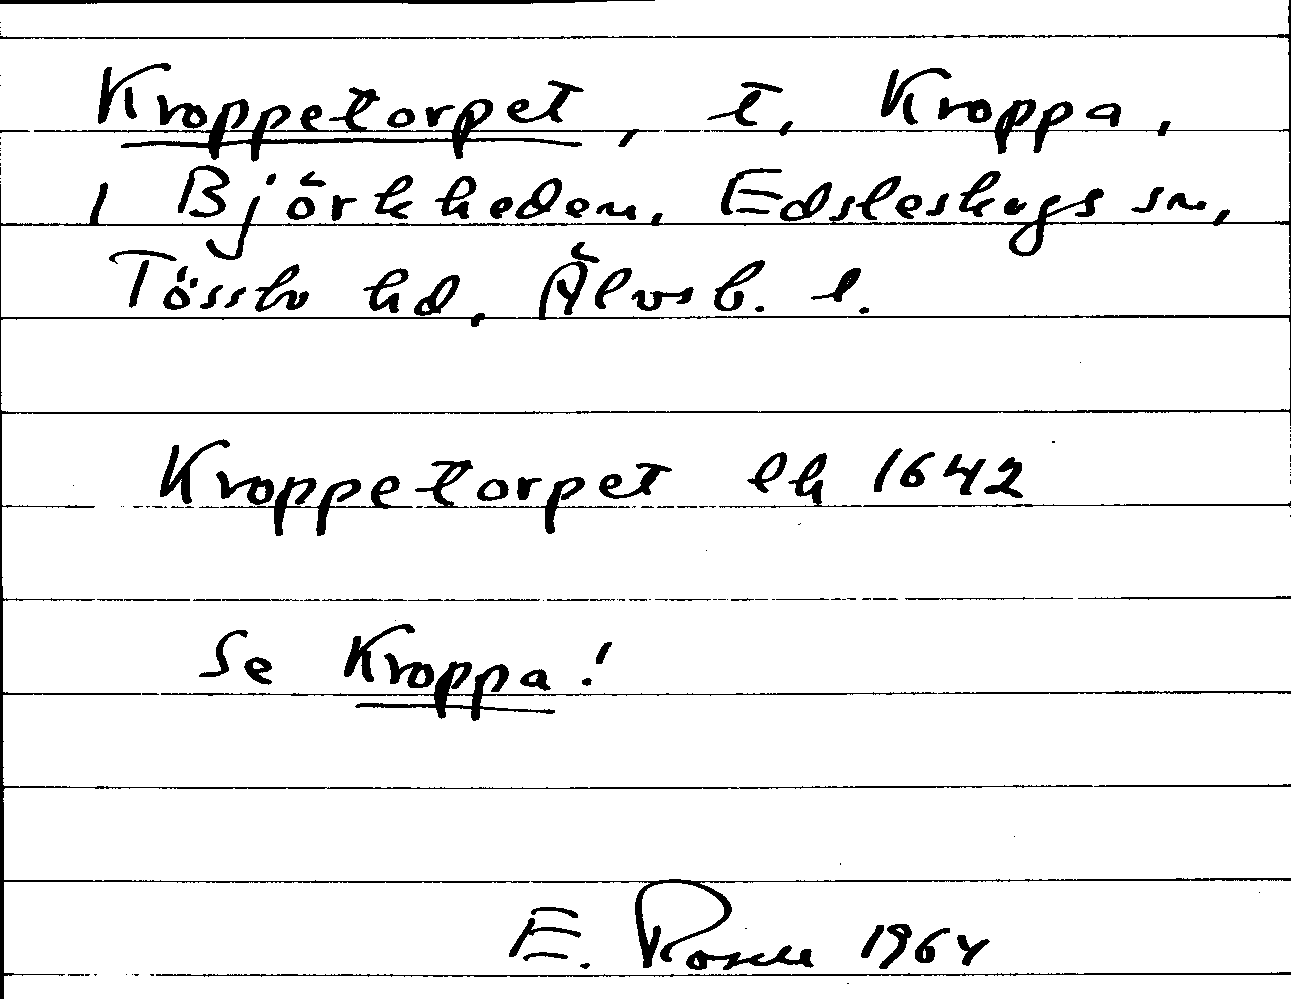 Kroppetorpet, t. Kroppa,
1 Björkheden, Edsleskogs sn,
Tössbo hd, Älvsb. l.
Kroppetorpet lh 1642
Se Kroppa!
E. Rosell 1964